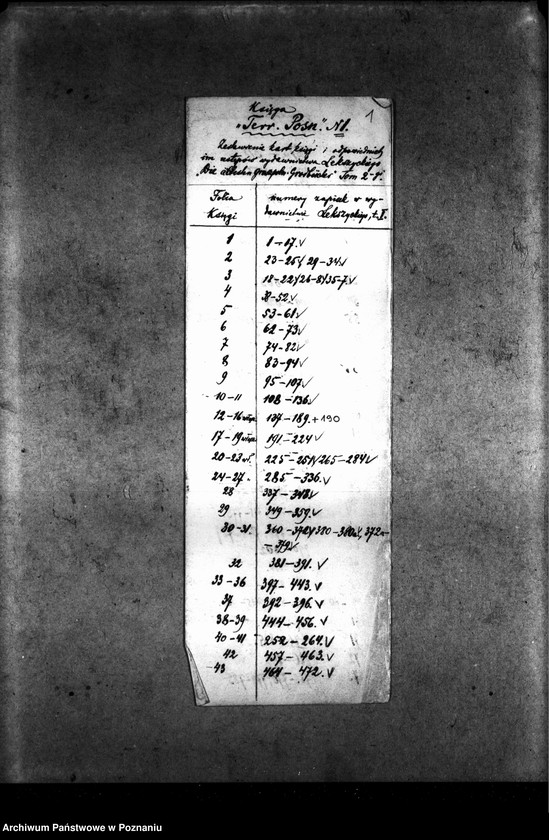 Księga
1
"Terr. Posn." N1.
Zestawienie kart księgi i odpowiednich
im ustępów wydawnictwa Lekszyckiego
"Die ältesten Grosspoln. Grodbücher" Tom 2-gi.
Folia księgi numery zapisek w wydawnictwie Lekszyckiego, t. II.
1 1-17.√
2 23-25√ 29-34√
3 18-22√26-8√35-7.√
4 38-52.√
5 53-61√
6 62-73√
7 74-82√
8 83-94√
9 95-107√
10-11 108-136√
12-16 137-189.+190
17-19 191-224√
20-23 225-251√265-284√
24-27. 285-336.√
28 337-348√
29 349-359.√
30-31. 360-372
-379√
32 381-391.√
33-36 397-443.√
37 392-396.√
38-39 444-456.√
40-41 252-264.√
42 457-463.√
43 464-472.√
Archiwum Państwowe w Poznaniu